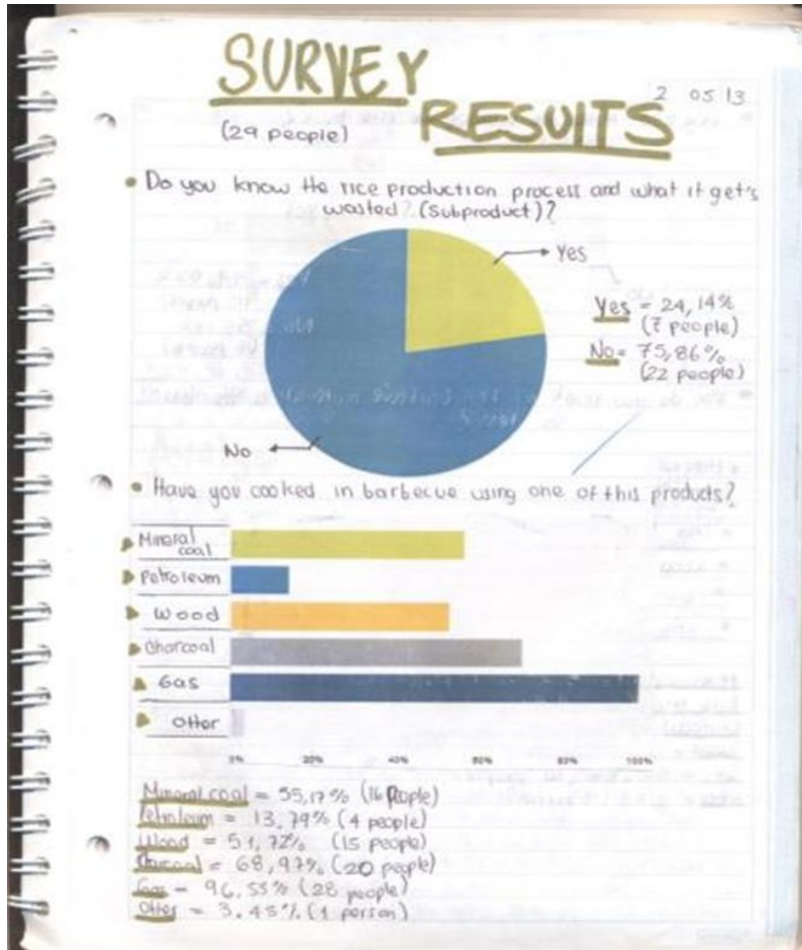 SURVEY
2 05 13
RESUITS
(29 people)
• Do you know the rice production process and what it get's
wasted? (Subproduct)?
Yes
Yes = 24,14%
(7 people)
No = 75,86%
(22 people)
No
• Have you cooked in barbecue using one of this products?
Mineral
coal
Petroleum
Wood
Charcoal
Gas
Otter
0% 20% 40% 60% 80% 100%
Mineral coal = 55,17% (16 People)
Petroleum = 13,79% (4 people)
Wood = 51,72% (15 people)
Charcoal = 68,97% (20 people)
Gas = 96,55% (28 people)
Otter = 3.45% (1 person)